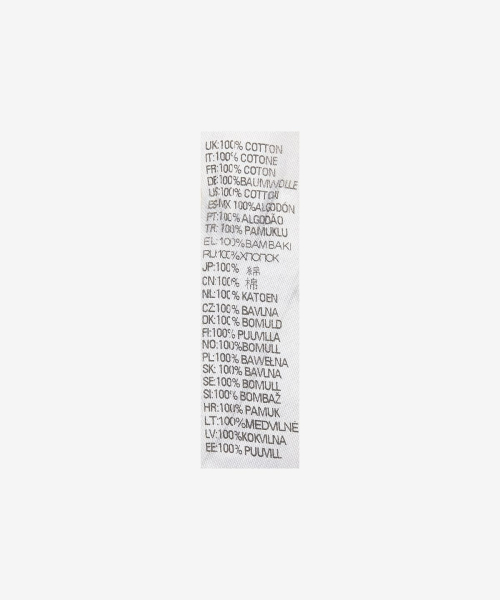 UK:100% COTTON
IT:100% COTONE
FR:100% COTON
DE:100%BAUMWOLLE
US:100% COTTON
ES-MX 100%ALGODÓN
PT:100% ALGODÃO
TR: 100% PAMUKLU
EL: 100%BAMBAKI
RU:100%ХЛОПОК
JP:100% 綿
CN:100% 棉
NL:100% KATOEN
CZ:100% BAVLNA
DK:100% BOMULD
FI:100% PUUVILLA
NO:100%BOMULL
PL:100% BAWEŁNA
SK: 100% BAVLNA
SE:100% BOMULL
SI:100% BOMBAŽ
HR:100% PAMUK
LT:100%MEDVILNĖ
LV:100%KOKVILNA
EE:100% PUUVILL